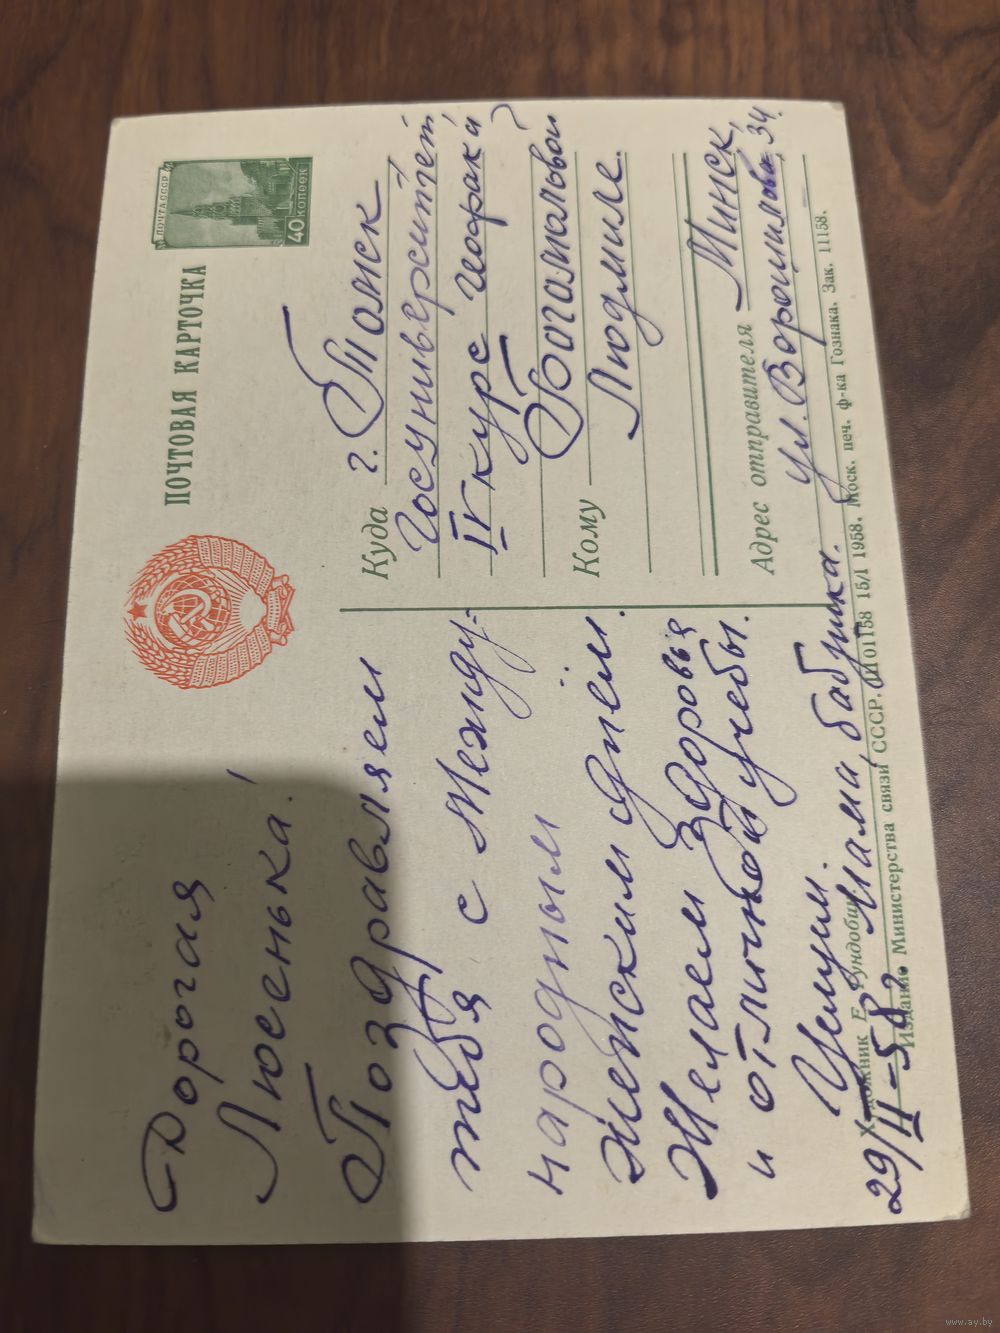 ПОЧТОВАЯ КАРТОЧКА
ПОЧТА СССР
40 КОПЕЕК
Дорогая
Люсенька!
Поздравляем
тебя с Между-
народным
женским днём.
Желаем здоровья
и отличной учебы.
Целуем.
Мама, бабушка.
29/II-58
Куда г. Томск
Госуниверситет
IV курс геофак
Кому
Людмиле.
Адрес отправителя Минск,
ул. Ворошилова, 34.
Художник Е. Гундобин.
Издание Министерства связи СССР. Ш01158 15/I 1958. Моск. печ. ф-ка Гознака. Зак. 11158.
www.ay.by